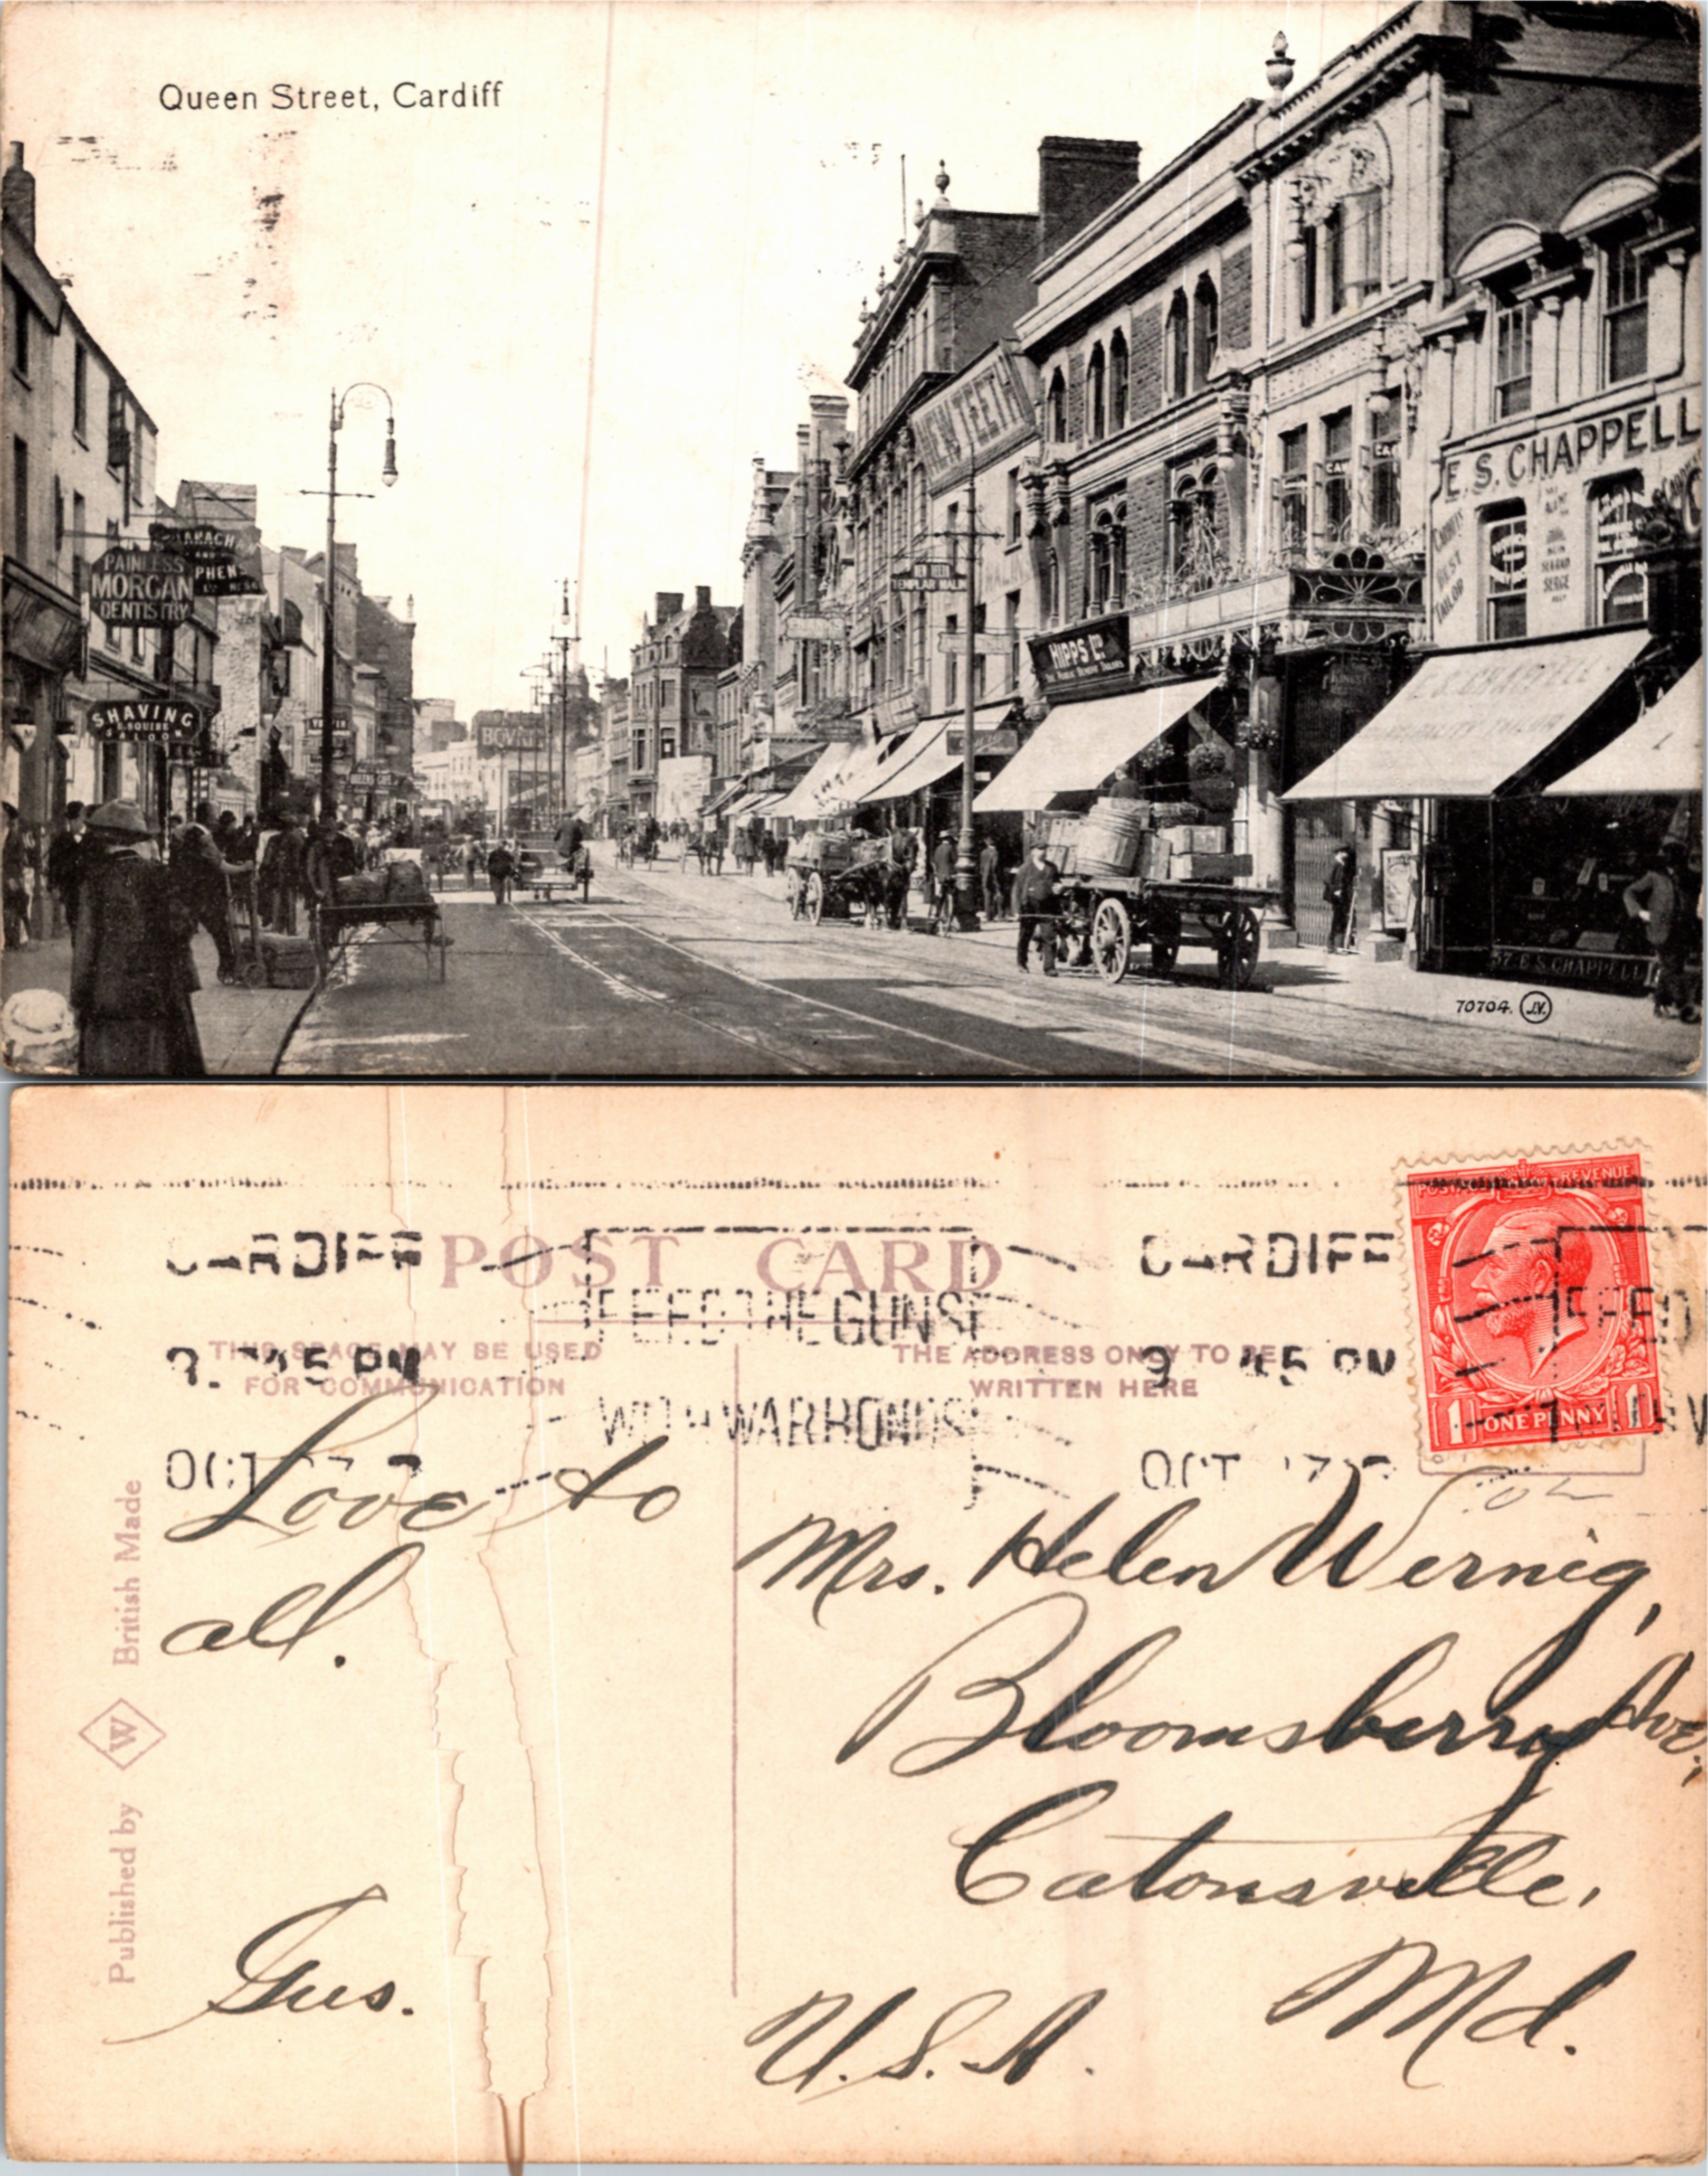 Queen Street, Cardiff
NEW TEETH
E. S. CHAPPELL
CARDIFF'S
BEST
TAILOR
PAINLESS
MORGAN
DENTISTRY
AND
PHEN
NEW TEETH
TEMPLAR MALIN
HIPPS LD
SHAVING
SALOON
BOVRIL
57 E S CHAPPELL
70704. J.V.
POST CARD
CARDIFF
FEED THE GUNS
CARDIFF
POSTAGE REVENUE
FEED
THIS SPACE MAY BE USED
FOR COMMUNICATION
THE ADDRESS ONLY TO BE
WRITTEN HERE
45 PM
45 PM
WITH WAR BONDS
ONE PENNY
1 1
OCT
OCT
Love to
all.
Gus.
Mrs. Helen Wernig,
Bloomsberry Ave.,
Catonsville,
Md.
U.S.A.
Published by W British Made